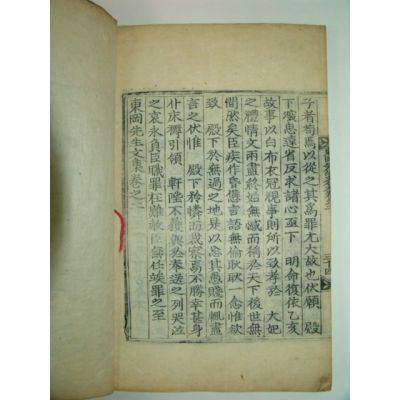 子者苟焉以從之其爲罪尤大故也伏願 殿
下慮患遠省反求諸心亟下 明命復依乙亥
故事以白布衣冠視事則所以致孝於 大妃
之禮情文兩盡終始無憾而稱於天下後世無
間然矣臣疾作昏憊言語無倫耿耿一念惟欲
致 殿下於無過之地是以忘其愚賤而輒盡
言之伏惟 殿下矜憐而裁察焉不勝幸甚身
仆床褥引領 軒陛不獲與於奉送之列哭泣
之哀永負臣職罪在難赦臣無任竢罪之至
東岡先生文集卷之